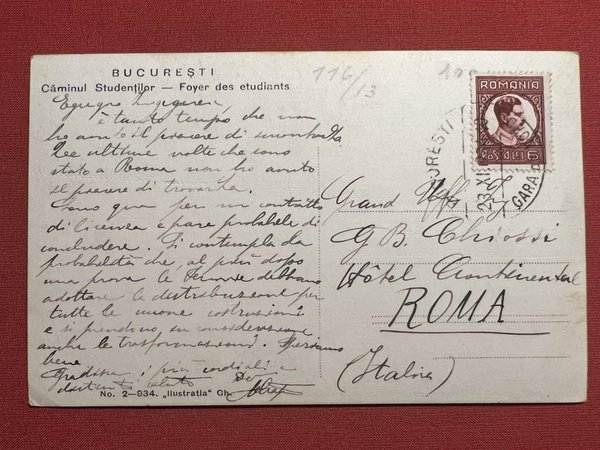 BUCUREȘTI
Căminul Studenților — Foyer des etudiants
116/13
Egregio
è tanto tempo che non
ho avuto il piacere di
ultime volte che sono
stato a Roma non ho avuto
il piacere di trovarla.
Sono qua per un contratto
di licenza e pare probabile di
concludere. Si contempla la
probabilità che, al più dopo
una prova le Ferrovie debbano
adottare la distribuzione per
tutte le nuove costruzioni
e si prendono in considerazione
anche le trasformazioni. Speriamo
bene
Gradisca i più cordiali e
distinti saluti
No. 2—934. „Ilustratia" Gh.
ROMANIA
POSTA LEI 6
BUCUREȘTI
GARA
23 XII
Grand Uff.
G B. Chiossi
Hôtel Continental
ROMA
(Italia)